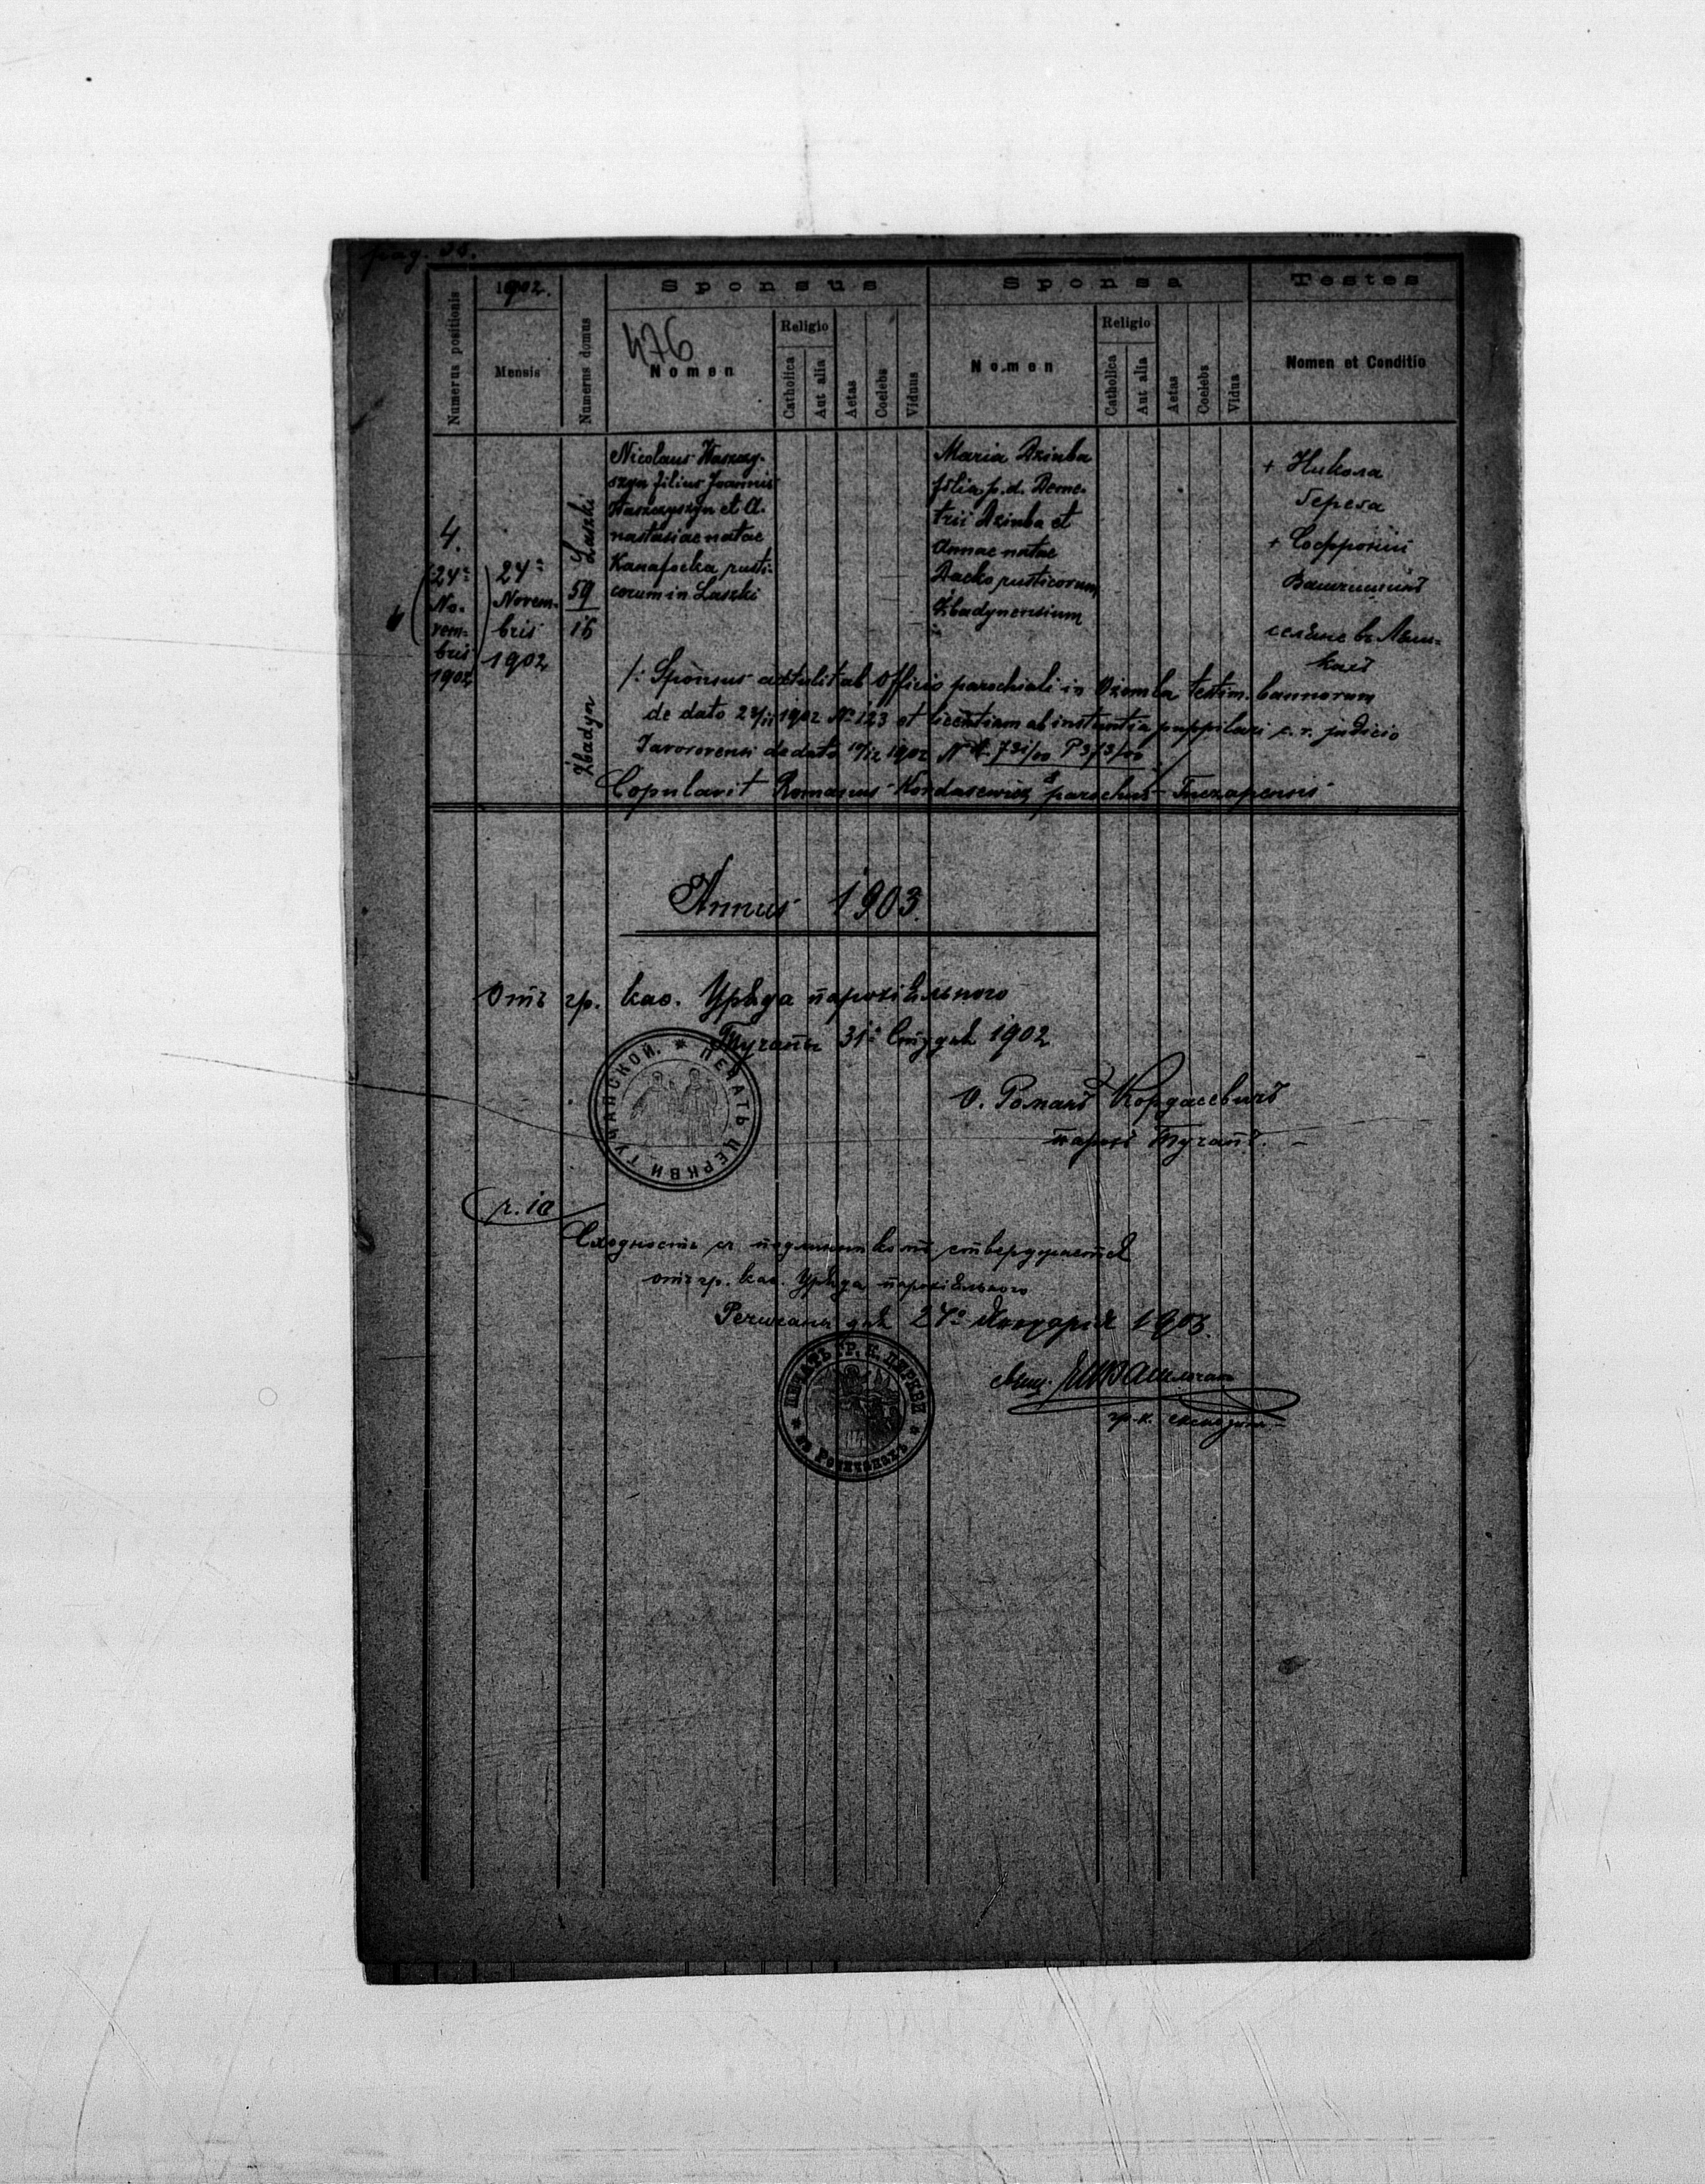 pag.
1902.
Sponsus
Sponsa
Testes
Numerus positionis
Mensis
Numerus domus
476
Nomen
Religio
Catholica
Aut alia
Aetas
Coelebs
Viduus
Nomen
Religio
Catholica
Aut alia
Aetas
Coelebs
Vidua
Nomen et Conditio
4.
(24ª
No-
vem-
bris
1902)
24ª
Novem-
bris
1902
Laszki
59
16
Żbadyn
Nicolaus Waszczy-
szyn filius Joannis
Waszczyszyn et A-
nastasiae natae
Kanafocka rusti-
corum in Laszki
Maria Dziuba
filia p. d. Deme-
trii Dziuba et
Annae natae
Dacko rusticorum
Żbadynensium
+ Никола
Гереґа
+ Софроній
Ващишинъ
селяне въ Лаш-
кахъ
/: Sponsus attulit ab Officio parochiali in Ożomla testim. bannorum
de dato 1902 № 123 et licentiam ab instantia puppilari c. r. judicio
Javorovensi de dato 1902 N
Copulavit Romanus Kordasewicz parochus Tuczapensis
Annus 1903.
Отъ гр. каѳ. Уряда парохіяльного
Тучапы 31º Студня 1902
О. Романъ Кордасевичъ
парохъ Тучапъ.
ПЕЧАТЬ ЦЕРКВИ ТУЧАПСКОЙ.
Сходность съ подлинникомъ ствердрається
отъ гр. каѳ. Уряда парохіяльного
дня 27º Януарія 1903.
ПЕЧАТЬ ГР. К. ЦЕРКВИ